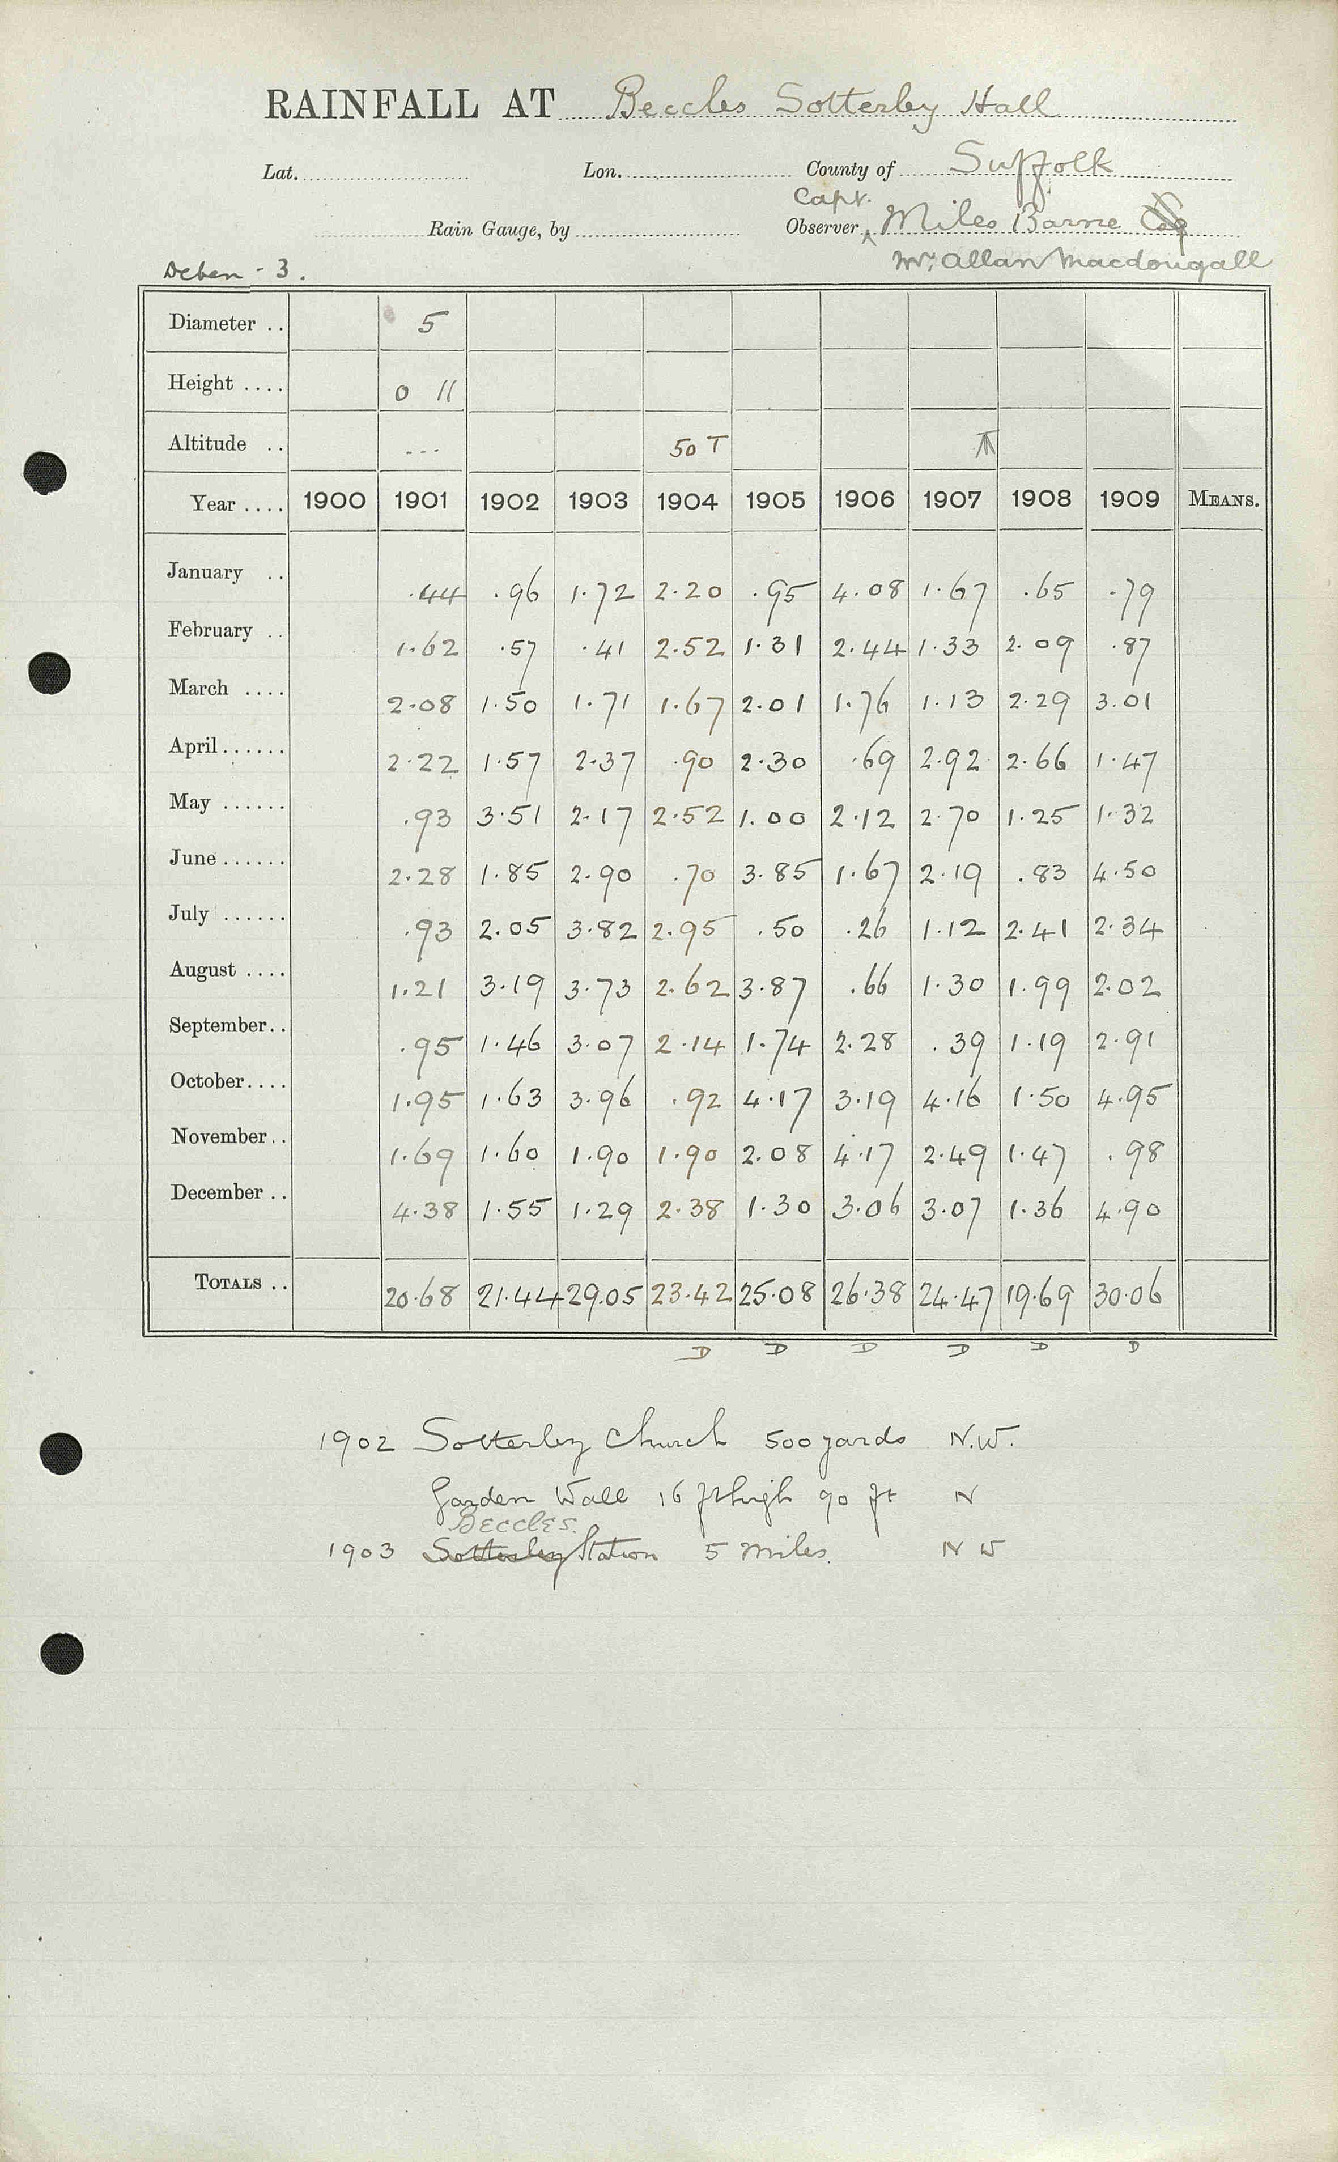 RAINFALL AT Beccles Sotterley Hall
Lat. Lon. County of Suffolk
Capt.
Rain Gauge, by Observer Miles Barne Esq
Mr. Allan Macdougall
Deben - 3.
Diameter .. 5
Height .... 0 11
Altitude .. --- 50 T
Year .... 1900 1901 1902 1903 1904 1905 1906 1907 1908 1909 MEANS.
January .. .44 .96 1.72 2.20 .95 4.08 1.67 .65 .79
February .. 1.62 .57 .41 2.52 1.31 2.44 1.33 2.09 .87
March .... 2.08 1.50 1.71 1.67 2.01 1.76 1.13 2.29 3.01
April ...... 2.22 1.57 2.37 .90 2.30 .69 2.92 2.66 1.47
May ...... .93 3.51 2.17 2.52 1.00 2.12 2.70 1.25 1.32
June ...... 2.28 1.85 2.90 .70 3.85 1.67 2.19 .83 4.50
July ...... .93 2.05 3.82 2.95 .50 .26 1.12 2.41 2.34
August .... 1.21 3.19 3.73 2.62 3.87 .66 1.30 1.99 2.02
September.. .95 1.46 3.07 2.14 1.74 2.28 .39 1.19 2.91
October.... 1.95 1.63 3.96 .92 4.17 3.19 4.16 1.50 4.95
November.. 1.69 1.60 1.90 1.90 2.08 4.17 2.49 1.47 .98
December .. 4.38 1.55 1.29 2.38 1.30 3.06 3.07 1.36 4.90
TOTALS .. 20.68 21.44 29.05 23.42 25.08 26.38 24.47 19.69 30.06
D D D D D D
1902 Sotterley Church 500 yards N.W.
Garden Wall 16 ft high 90 ft N
Beccles.
1903 Sotterley Station 5 miles. N W